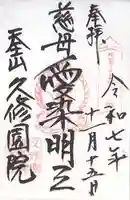 奉拝
令和七年
十月十五日
慈母愛染明王
天王山
久修園院